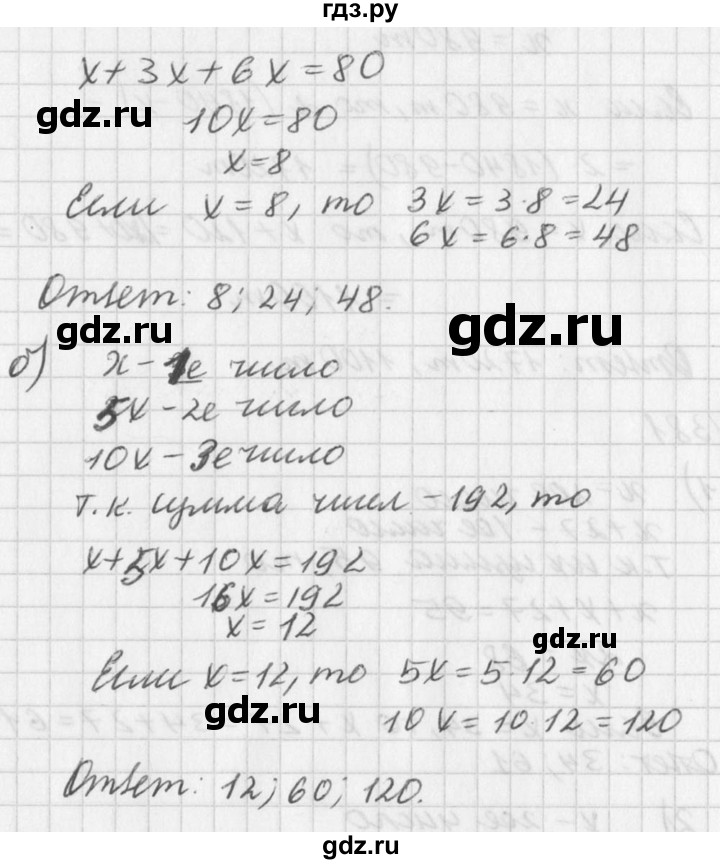 гдз.ру
x+3x+6x=80
gdz.ru
10x=80
x=8
Если x=8, то 3x=3·8=24
6x=6·8=48
Ответ: 8; 24; 48.
gdz.ru
gdz.ru
б) x - 1е число
5x - 2е число
10x - 3е число
т.к. сумма чисел - 192, то
x+5x+10x=192
16x=192
x=12
gdz.ru
Если x=12, то 5x=5·12=60
gdz.ru
10x=10·12=120
Ответ: 12; 60; 120.
gdz.ru